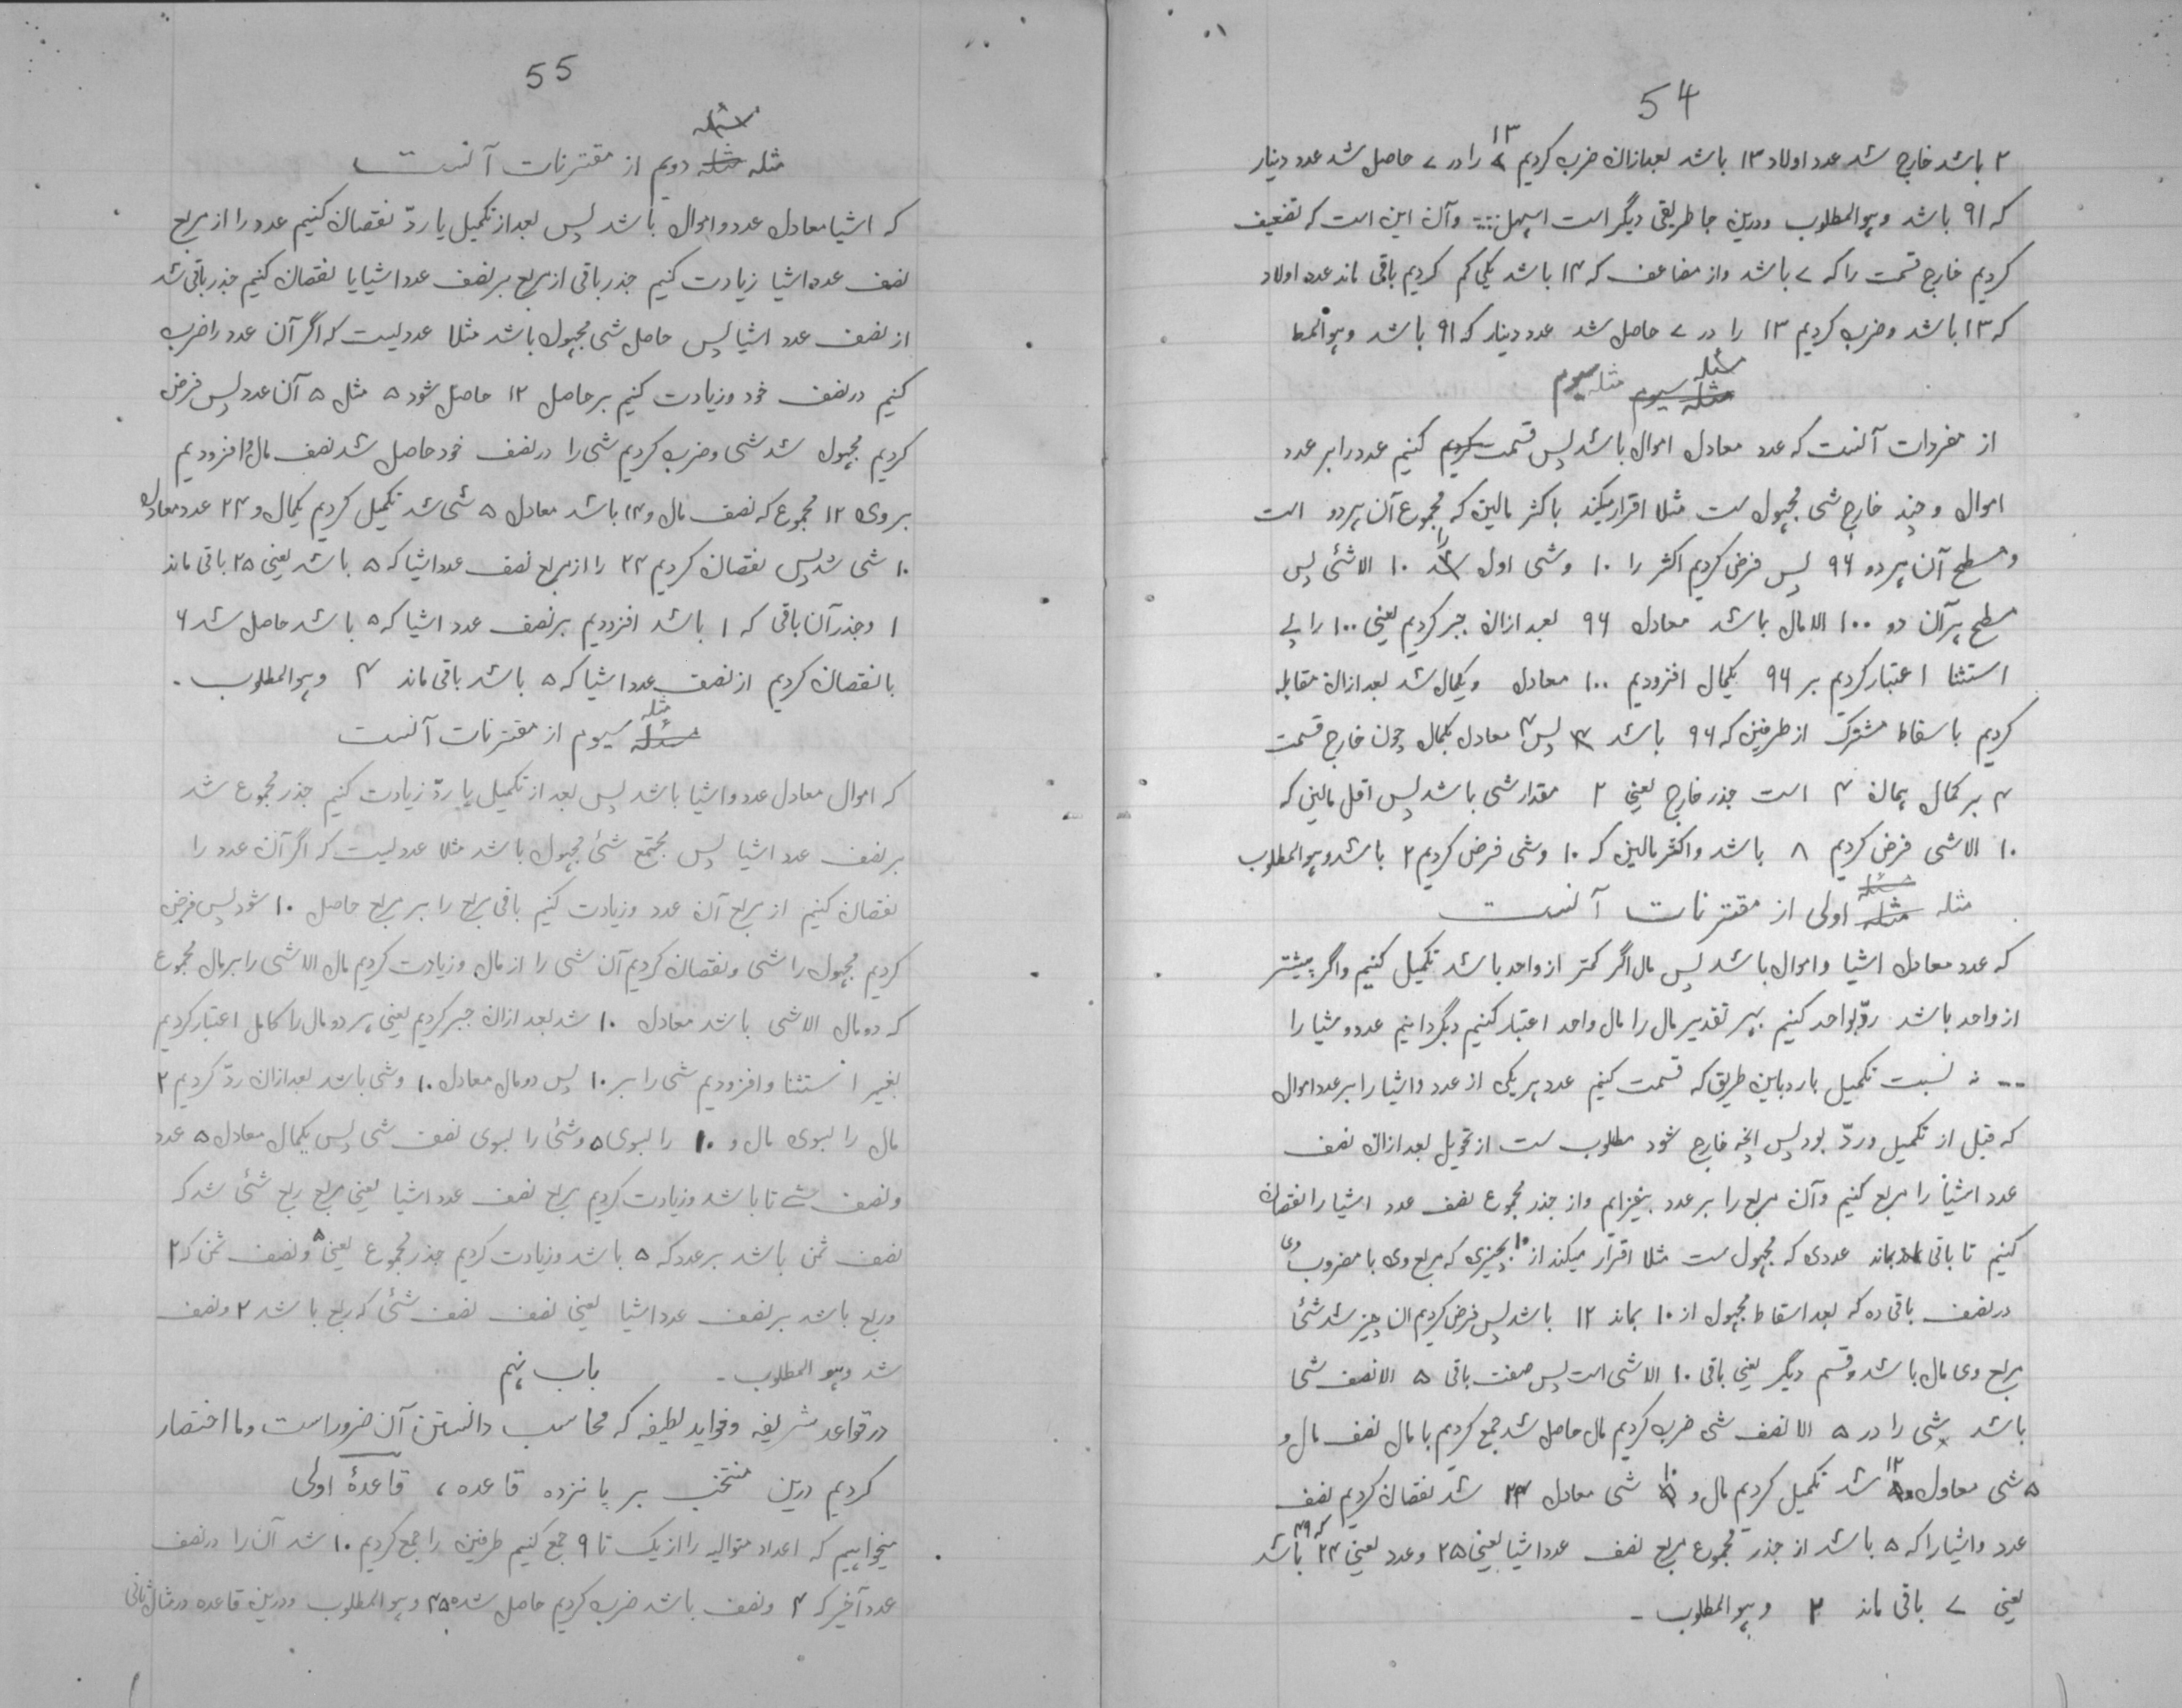 54
۲ باشد خارج شد عدد اولاد ۱۳ باشد بعد ازان ضرب کردیم ۱۳ را در ۷ حاصل شد عدد دینار
که ۹۱ باشد وهو المطلوب ودرین جا طریقی دیگر است اسهل وآن این است که تضعیف
کردیم خارج قسمت را که ۷ باشد واز مضاعف که ۱۴ باشد یکی کم کردیم باقی ماند عدد اولاد
که ۱۳ باشد وضرب کردیم ۱۳ را در ۷ حاصل شد عدد دینار که ۹۱ باشد وهو المط
مثله سیوم
از مفردات آنست که عدد معادل اموال باشد پس قسمت کنیم عدد را بر عدد
اموال و جذر خارج شی مجهول ست مثلا اقرار میکند باکثر مالین که مجموع آن هردو است
ومسطح آن هردو ۹۶ پس فرض کردیم اکثر را ۱۰ وشی اول را ۱۰ الاشئی پس
مسطح هرآن دو ۱۰۰ الامال باشد معادل ۹۶ بعد ازان جبر کردیم یعنی ۱۰۰ را بے
استثنا اعتبار کردیم بر ۹۶ یکمال افزودیم ۱۰۰ معادل ویکمال شد بعد ازان مقابله
کردیم باسقاط مشترک از طرفین که ۹۶ باشد پس ۴ معادل یکمال چون خارج قسمت
۴ بر کمال همان ۴ است جذر خارج یعنی ۲ مقدار شی باشد پس اقل مالین که
۱۰ الاشی فرض کردیم ۸ باشد واکثر مالین که ۱۰ وشی فرض کردیم ۲ باشد وهو المطلوب
مثله اولی از مقترنات آنست
که عدد معادل اشیا واموال باشد پس مال اگر کمتر از واحد باشد تکمیل کنیم واگر بیشتر
از واحد باشد ردّ بواحد کنیم بهر تقدیر مال را مال واحد اعتبار کنیم دیگر دانیم عدد وشیا را
نسبت تکمیل یا رد باین طریق که قسمت کنیم عدد هر یکی از عدد واشیا را بر عدد اموال
که قبل از تکمیل وردّ بود پس انچه خارج شود مطلوب ست از تحویل بعد ازان نصف
عدد اشیا را مربع کنیم وآن مربع را بر عدد بیفزایم واز جذر مجموع نصف عدد اشیا را نقصان
کنیم تا باقی بماند عددی که مجهول ست مثلا اقرار میکند از ۱۰ بچیزی که مربع وی با مضروب وی
در نصف باقی ده که بعد اسقاط مجهول از ۱۰ بماند ۱۲ باشد پس فرض کردیم ان چیز شد شئی
مربع وی مال باشد وقسم دیگر یعنی باقی ۱۰ الاشی است پس نصف باقی ۵ الانصف شی
باشد شی را در ۵ الا نصف شی ضرب کردیم مال حاصل شد جمع کردیم با مال نصف مال و
۵ شی معاول ۱۲ شد تکمیل کردیم مال و ۱۰ شی معادل ۲۴ شد نقصان کردیم نصف
عدد واشیا را که ۵ باشد از جذر مجموع مربع نصف عدد اشیا یعنی ۲۵ وعدد یعنی ۲۴ که ۴۹ باشد
یعنی ۷ باقی ماند ۲ وهو المطلوب ۔
55
مثله دویم از مقترنات آنست
که اشیا معادل عدد واموال باشد پس بعد از تکمیل یا ردّ نقصان کنیم عدد را از مربع
نصف عدد اشیا زیادت کنیم جذر باقی از مربع بر نصف عدد اشیا یا نقصان کنیم جذر باقی شد
از نصف عدد اشیا پس حاصل شی مجهول باشد مثلا عددیست که اگر آن عدد را ضرب
کنیم در نصف خود وزیادت کنیم بر حاصل ۱۲ حاصل شود ۵ مثل ۵ آن عدد پس فرض
کردیم مجهول شد شی وضرب کردیم شی را در نصف خود حاصل شد نصف مال و افزودیم
بروی ۱۲ مجموع که نصف مال و ۱۲ باشد معادل ۵ شی شد تکمیل کردیم یکمال و ۲۴ عدد معادل
۱۰ شی شد پس نقصان کردیم ۲۴ را از مربع نصف عدد اشیا که ۵ باشد یعنی ۲۵ باقی ماند
۱ وجذر آن باقی که ۱ باشد افزودیم بر نصف عدد اشیا که ۵ باشد حاصل شد ۶
یا نقصان کردیم از نصف عدد اشیا که ۵ باشد باقی ماند ۴ وهو المطلوب ۔
مثله سیوم از مقترنات آنست
که اموال معادل عدد واشیا باشد پس بعد از تکمیل یا ردّ زیادت کنیم جذر مجموع شد
بر نصف عدد اشیا پس مجتمع شئی مجهول باشد مثلا عددیست که اگر آن عدد را
نقصان کنیم از مربع آن عدد وزیادت کنیم باقی مربع را بر مربع حاصل ۱۰ شود پس فرض
کردیم مجهول را شی ونقصان کردیم آن شی را از مال وزیادت کردیم مال الاشی را بر مال مجموع
که دو مال الاشی باشد معادل ۱۰ شد بعد ازان جبر کردیم یعنی هر دو مال را کامل اعتبار کردیم
بغیر استثنا وافزودیم شی را بر ۱۰ پس دو مال معادل ۱۰ وشی باشد بعد ازان ردّ کردیم ۲
مال را بسوی مال و ۱۰ را بسوی ۵ وشئی را بسوی نصف شی پس یکمال معادل ۵ عدد
ونصف شے تا باشد وزیادت کردیم مربع نصف عدد اشیا یعنی مربع ربع شئی شد که
نصف ثمن باشد بر عدد که ۵ باشد وزیادت کردیم جذر مجموع یعنی ۵ ونصف ثمن که ۲
وربع باشد بر نصف عدد اشیا یعنی نصف نصف شئی که ربع باشد ۲ ونصف
شد وهو المطلوب ۔ باب نهم
در قواعد شریفه وفواید لطیفه که محاسب دانستن آن ضرور است وما اختصار
کردیم درین منتخب بر پانزده قاعده ، قاعدهٔ اولی
میخواهیم که اعداد متوالیه را از یک تا ۹ جمع کنیم طرفین را جمع کردیم ۱۰ شد آن را در نصف
عدد آخیر که ۴ ونصف باشد ضرب کردیم حاصل شد ۴۵ وهو المطلوب ودرین قاعده در مثال ثانی